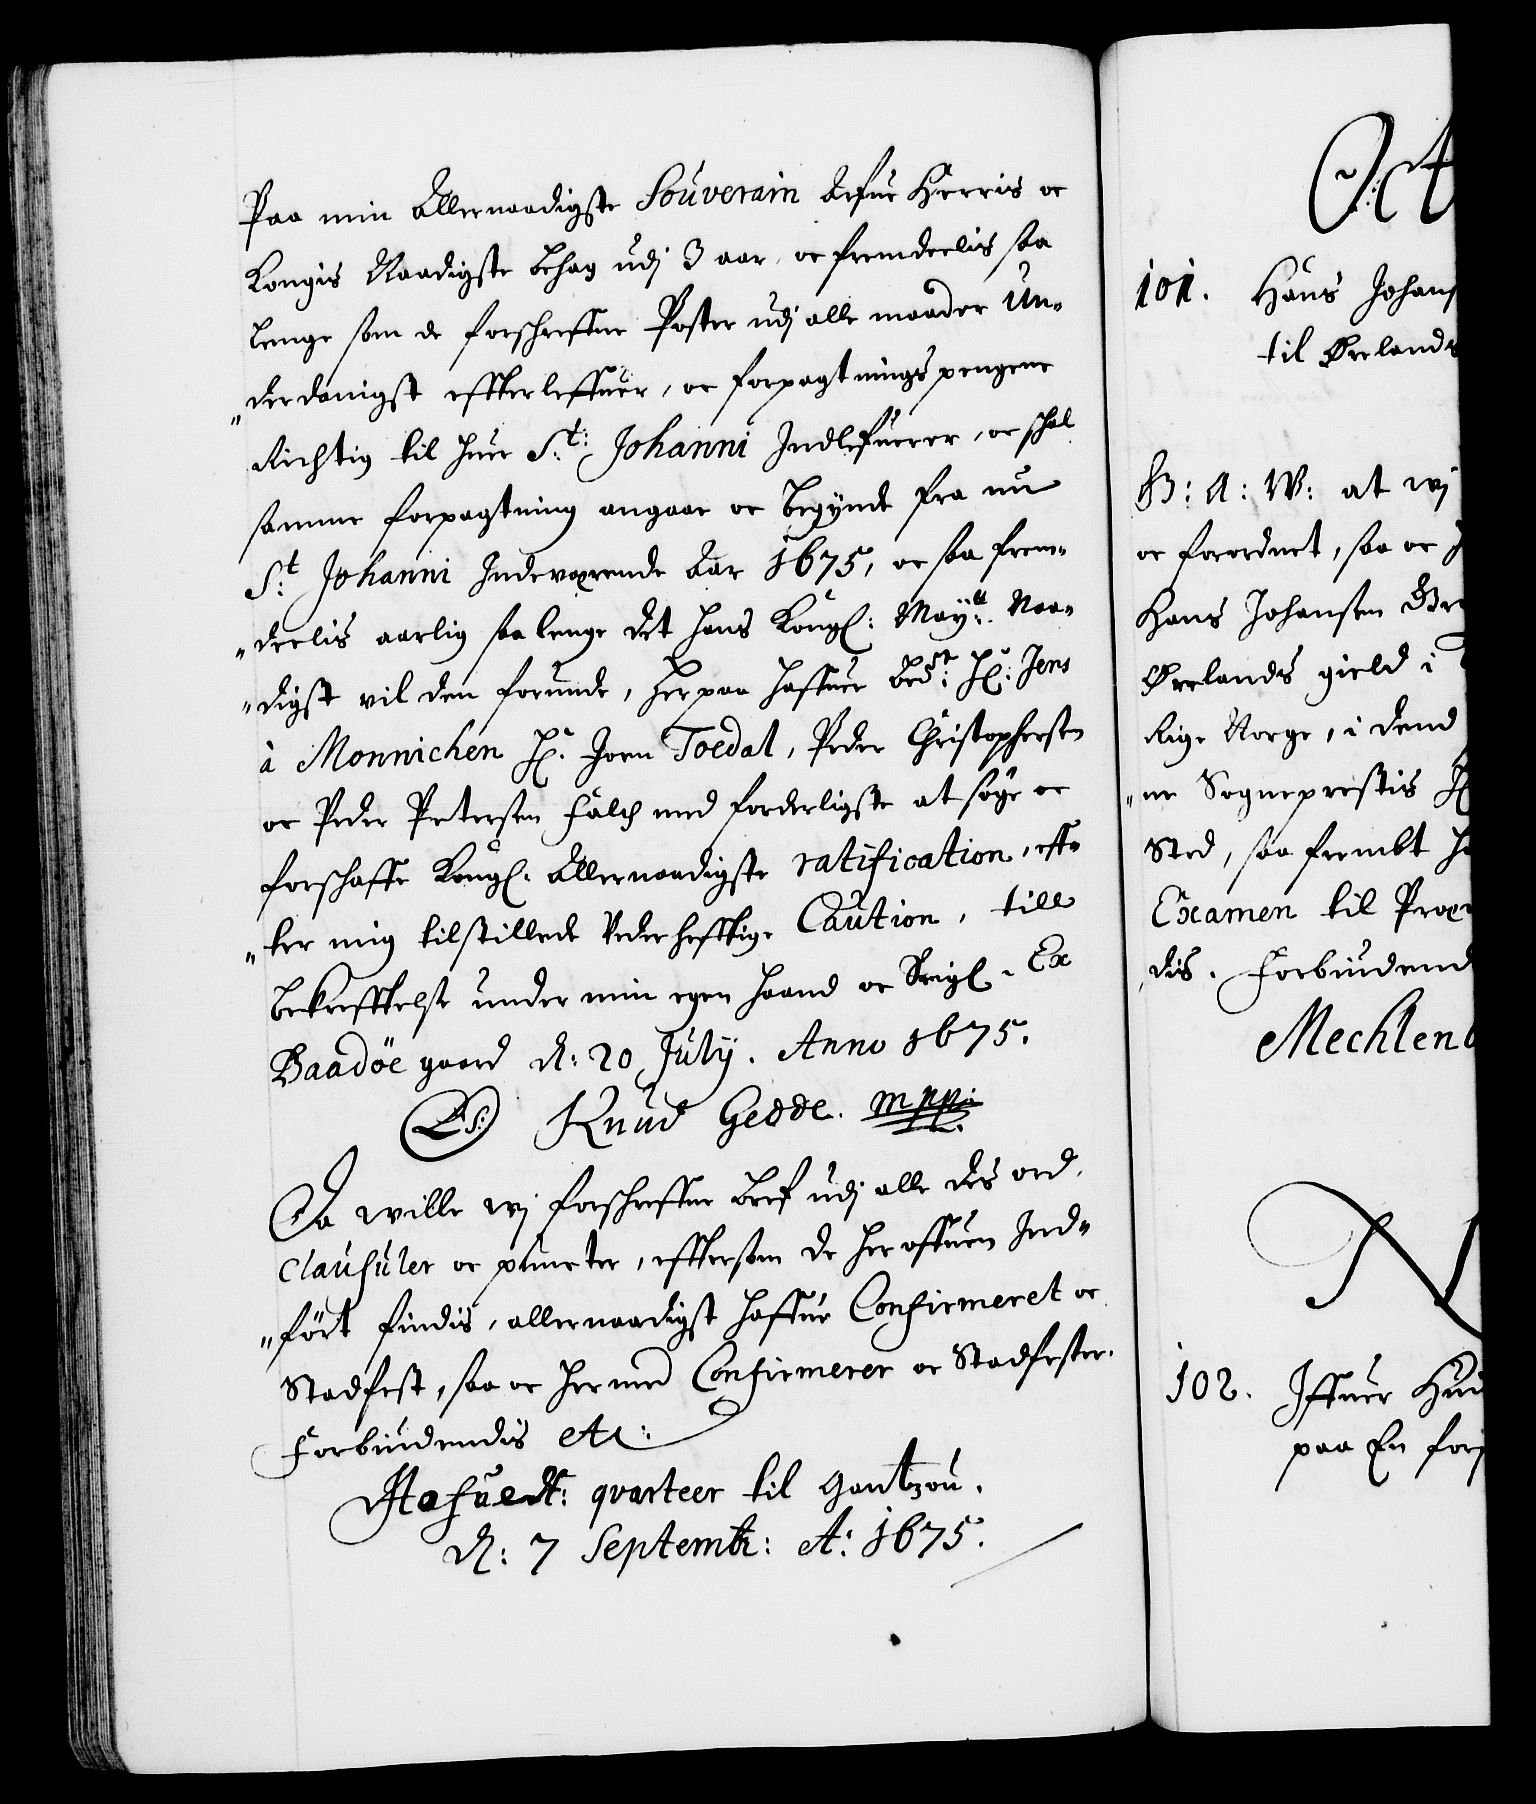 Paa min Allernaadigste Souverain Arfue Herris oc
Kongis Naadigste behag udj 3 aar, oc fremdeelis saa
lenge som de forschreffne Poster udj alle maader Un-
"derdanigst effterleffuer, oc forpagtnings pengene
Richtig til huer St: Johanni Indlefuerer, oc schal
samme forpagtning angaar oc begynde fra nu
St Johanni Indeverende Aar 1675, oc saa frem-
"deelis aarlig saa lenge det hans Kongl: Maytt: Naa-
"digst vil dem forunde, Herpaa haffuer bedst: Hr: Jens
à Monnichen Hr: Joen Toedal, Peder Christophersen
oc Peder Petersen Falch med forderligste at søge oc
forschaffe Kongl. Allernaadigste ratification, eff-
"ter mig tilstillede Vederhefftige Caution, till
bekrefftelse under min egen haand oc Seigl. Ex
Baadöe gaard d: 20 July. Anno 1675.
LS: Knud Gedde. mpp:
Da wille wj forschreffne bref udj alle des ord,
Clausuler oc puncter, efftersom de her offuen Ind-
"fört findis, allernaadigst haffue Confirmeret oc
Stadfest, saa oc hermed Confirmerer oc Stadfester.
Forbiudendis etc:
Hafuedt: qvarteer til Gantzou.
d: 7 Septembr: A: 1675.
Oct
101. Hans Johans
til Ørelands
G: A: W: at wj
oc forordnet, saa oc
Hans Johansen
Ørelands gield i
Rige Norge, i dend
"ne Sognepræstis H
Sted, saa frembt h
Examen til Præ
dis. Forbiudend
Mechlenb
N
102. Iffuer Hu
paa En for